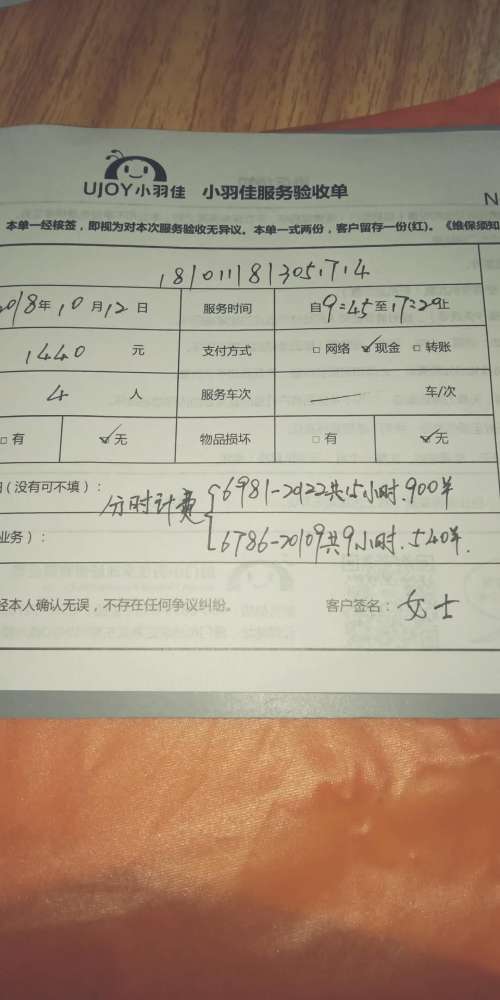 UJOY小羽佳 小羽佳服务验收单
N
本单一经接签,即视为对本次服务验收无异议。本单一式两份,客户留存一份(红)。《维保须知
18101118130517714
2018年10月12日 服务时间 自9:45至17:20止
1440元 支付方式 □网络 ☑现金 □转账
4人 服务车次 车/次
□有 ☑无 物品损坏 □有 ☑无
(没有可不填):
分时计费 6981-20122共15小时.900羊
业务): 6786-20109共9小时.540羊.
经本人确认无误,不存在任何争议纠纷。 客户签名:女士